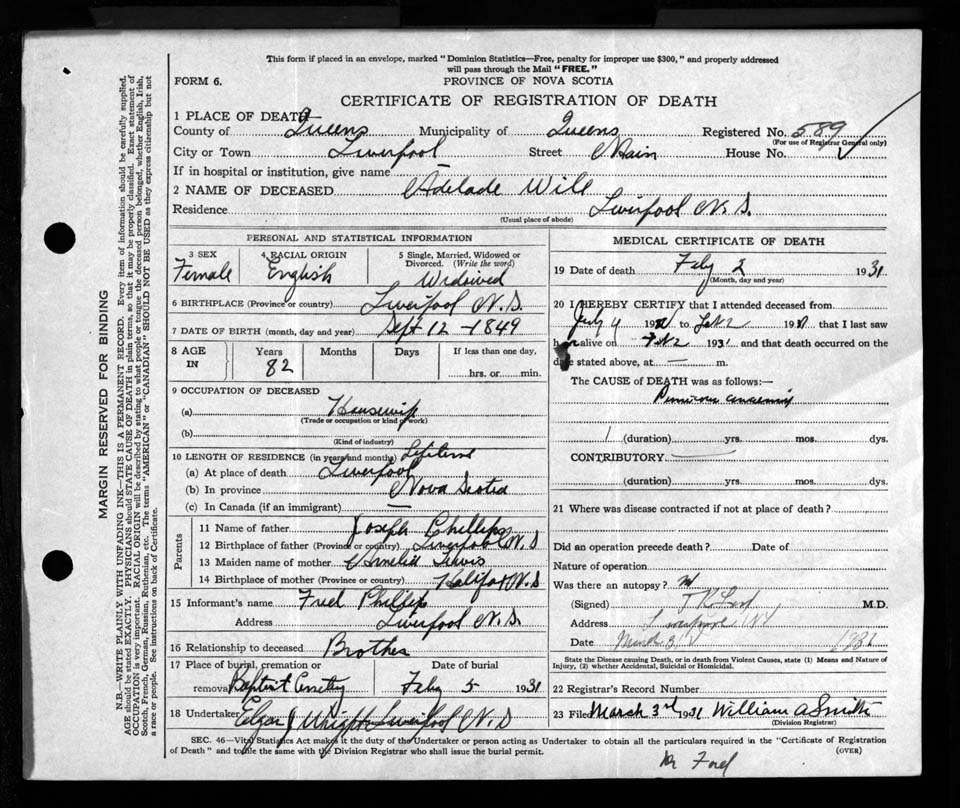 This form if placed in an envelope, marked "Dominion Statistics—Free, penalty for improper use $300," and properly addressed
will pass through the Mail "FREE."
FORM 6.
PROVINCE OF NOVA SCOTIA
CERTIFICATE OF REGISTRATION OF DEATH
1 PLACE OF DEATH
County of Queens Municipality of Queens Registered No. 589
(For use of Registrar General only)
City or Town Liverpool Street Main House No.
If in hospital or institution, give name —
2 NAME OF DECEASED Adelade Will
Residence Liverpool N.S.
(Usual place of abode)
PERSONAL AND STATISTICAL INFORMATION
3 SEX Female
4 RACIAL ORIGIN English
5 Single, Married, Widowed or Divorced. (Write the word) Widowed
6 BIRTHPLACE (Province or country) Liverpool N.S.
7 DATE OF BIRTH (month, day and year) Sept 12 - 1849
8 AGE IN Years 82 Months Days If less than one day, hrs. or min.
9 OCCUPATION OF DECEASED
(a) Housewife
(Trade or occupation or kind of work)
(b)
(Kind of industry)
10 LENGTH OF RESIDENCE (in years and months) Lifetime
(a) At place of death Liverpool
(b) In province Nova Scotia
(c) In Canada (if an immigrant) —
Parents
11 Name of father Joseph Phillips
12 Birthplace of father (Province or country) Liverpool N.S
13 Maiden name of mother Amelia
14 Birthplace of mother (Province or country) Halifax N.S
15 Informant's name Fred Phillips
Address Liverpool N.S.
16 Relationship to deceased Brother
17 Place of burial, cremation or removal Baptist Cemetery Date of burial Feby 5 1931
18 Undertaker Elgar J Wright Liverpool N.S
MEDICAL CERTIFICATE OF DEATH
19 Date of death Feby 2 1931
(Month, day and year)
20 I HEREBY CERTIFY that I attended deceased from
July 4 19 to Feb 2 19 that I last saw
h alive on Feb 2 1931 and that death occurred on the
date stated above, at — m.
The CAUSE of DEATH was as follows:—
Pernicious anaemia
1 (duration) yrs. mos. dys.
CONTRIBUTORY
(duration) yrs. mos. dys.
21 Where was disease contracted if not at place of death?
Did an operation precede death? Date of
Nature of operation
Was there an autopsy?
(Signed) M.D.
Address
Date March 3
State the Disease causing Death, or in death from Violent Causes, state (1) Means and Nature of
Injury, (2) whether Accidental, Suicidal or Homicidal.
22 Registrar's Record Number
23 Filed March 3rd 1931 William A Smith
(Division Registrar)
SEC. 46—Vital Statistics Act makes it the duty of the Undertaker or person acting as Undertaker to obtain all the particulars required in the "Certificate of Registration
of Death" and to file the same with the Division Registrar who shall issue the burial permit.
(OVER)
MARGIN RESERVED FOR BINDING
N.B.—WRITE PLAINLY WITH UNFADING INK—THIS IS A PERMANENT RECORD. Every item of information should be carefully supplied.
AGE should be stated EXACTLY. PHYSICIANS should STATE CAUSE OF DEATH in plain terms, so that it may be properly classified. Exact statement of
OCCUPATION is very important. RACIAL ORIGIN will be described by stating to what people or tongue the deceased person belonged, whether English, Irish,
Scotch, French, German, Russian, Ruthenian, etc. The terms "AMERICAN" or "CANADIAN" SHOULD NOT BE USED as they express citizenship but not
a race or people. See instructions on back of Certificate.